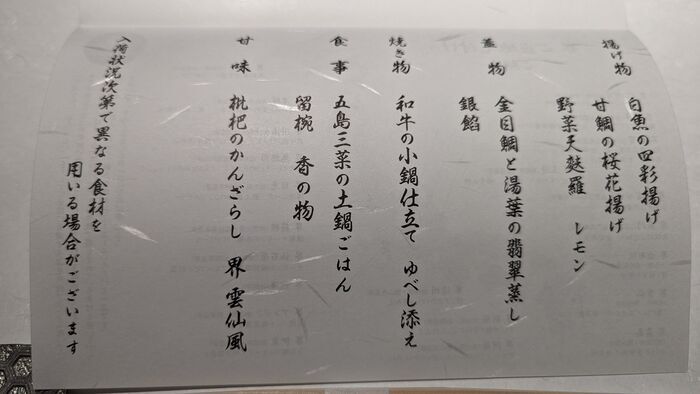 揚げ物
白魚の四彩揚げ
甘鯛の桜花揚げ
野菜天麩羅 レモン
蓋物
金目鯛と湯葉の翡翠蒸し
銀餡
焼き物
和牛の小鍋仕立て ゆべし添え
食事
五島三菜の土鍋ごはん
留椀 香の物
甘味
枇杷のかんざらし 界 雲仙風
入荷状況次第で異なる食材を
用いる場合がございます